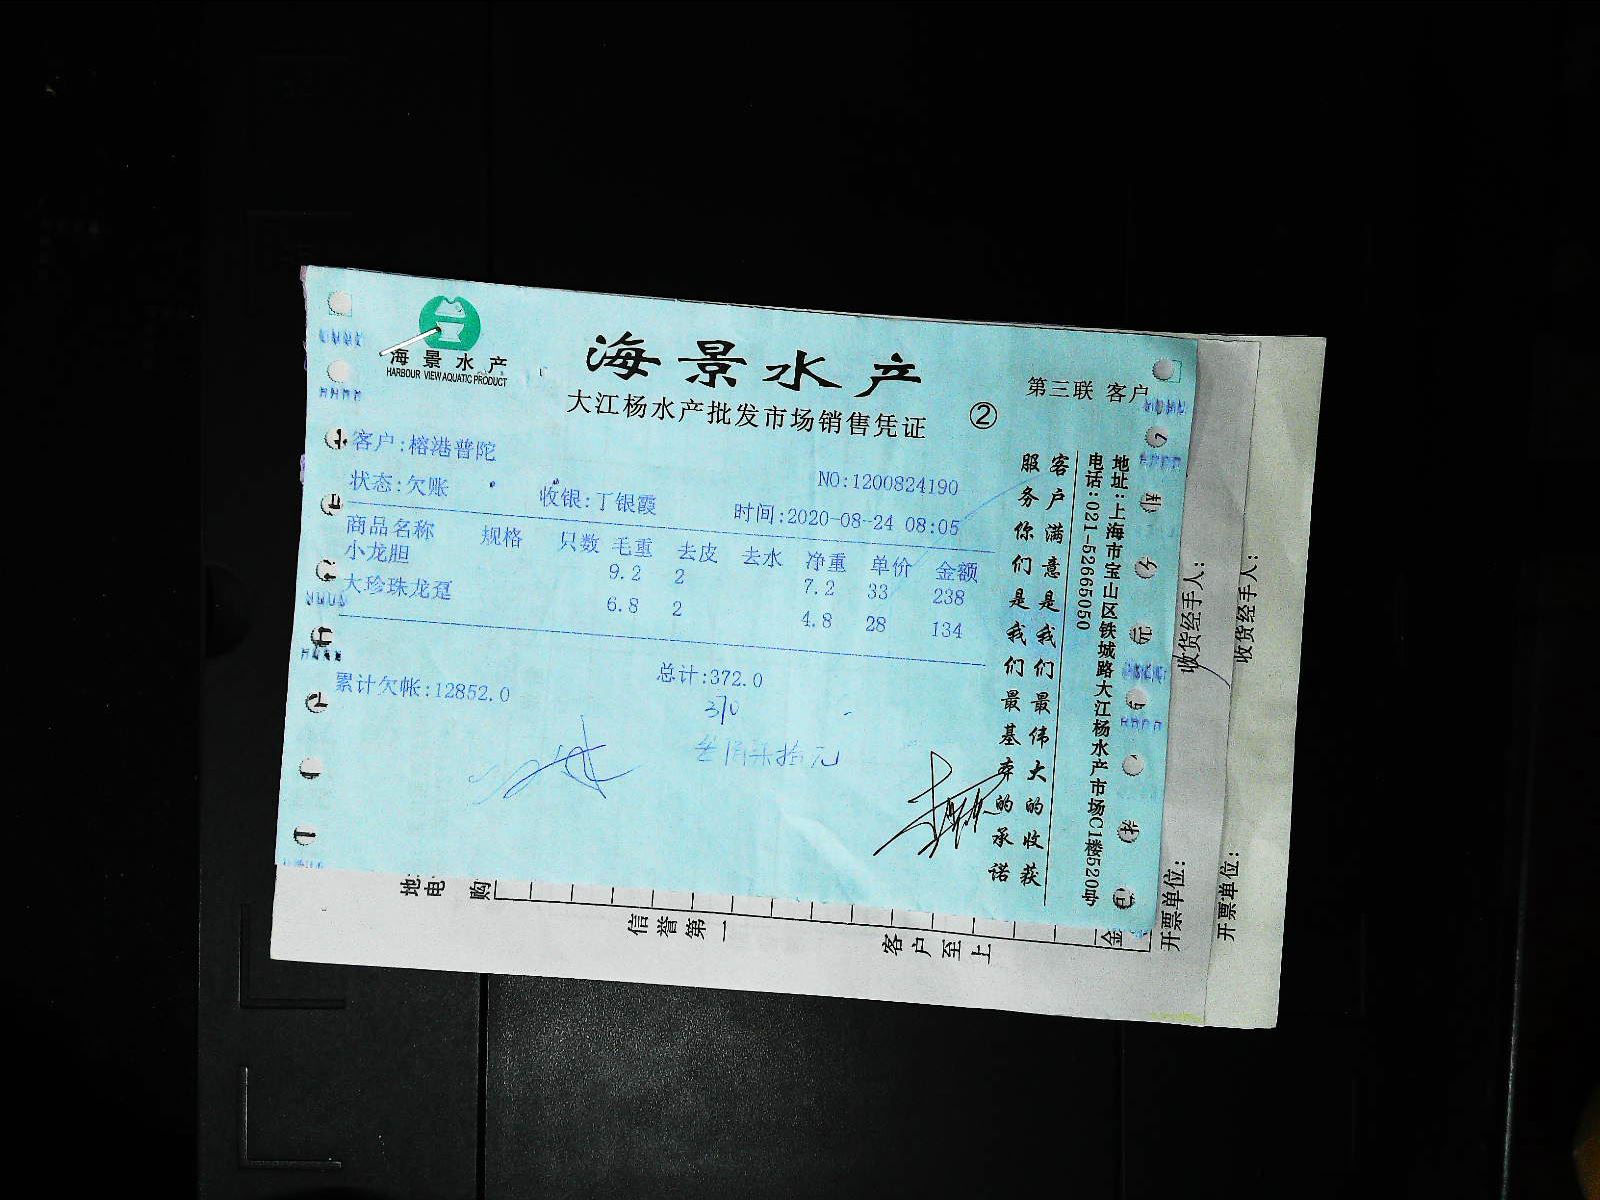 海景水产
HARBOUR VIEW AQUATIC PRODUCT
海景水产
大江杨水产批发市场销售凭证
②
第三联 客户
客户:榕港普陀
NO:1200824190
状态:欠账 收银:丁银霞 时间:2020-08-24 08:05
商品名称 规格 只数 毛重 去皮 去水 净重 单价 金额
小龙胆 9.2 2 7.2 33 238
大珍珠龙趸 6.8 2 4.8 28 134
累计欠帐:12852.0 总计:372.0
370
客户满意是我们最伟大的收获
服务你们是我们最基本的承诺
地址:上海市宝山区铁城路大江杨水产市场C1楼520号
电话:021-52665050
收货经手人:
收货经手人:
开票单位:
开票单位:
地
电
购
金
信誉第一
客户至上